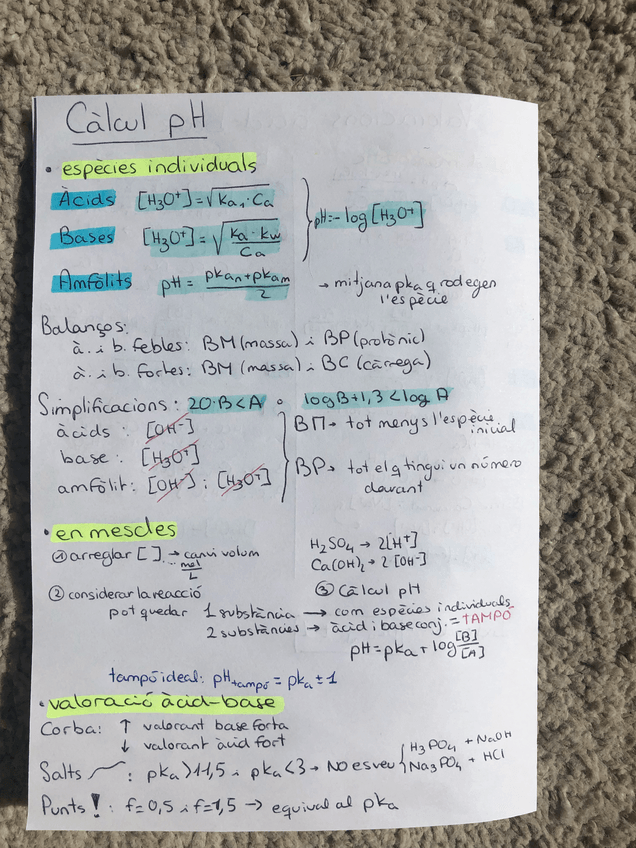 Càlcul pH
• espècies individuals
Àcids [H3O+]=√Ka1·Ca
Bases [H3O+]=√Ka·Kw/Ca
pH=-log[H3O+]
Amfòlits pH= pKan+pKam/2 → mitjana pKa q rodegen l'espècie
Balanços:
à. i b. febles: BM (massa) i BP (protònic)
à. i b. fortes: BM (massa) i BC (càrrega)
Simplificacions: 20·B<A o logB+1,3<log A
àcids: [OH-]
base: [H3O+]
amfòlit: [OH-] i [H3O+]
BM→ tot menys l'espècie inicial
BP→ tot el q tingui un número davant
• en mescles
① arreglar [ ] → canvi volum
mol/L
H2SO4 → 2[H+]
Ca(OH)2 → 2 [OH-]
② considerar la reacció
③ Càlcul pH
pot quedar 1 substància → com espècies individuals
2 substàncies → àcid i base conj. = TAMPÓ
pH=pKa+log[B]/[A]
tampó ideal: pHtampó = pKa ± 1
• valoració àcid-base
Corba: ↑ valorant base forta
↓ valorant àcid fort
Salts : pKa>11,5 i pKa<3 → NO es veu { H3PO4 + NaOH
Na3PO4 + HCl
Punts !: f=0,5 i f=1,5 → equival al pKa